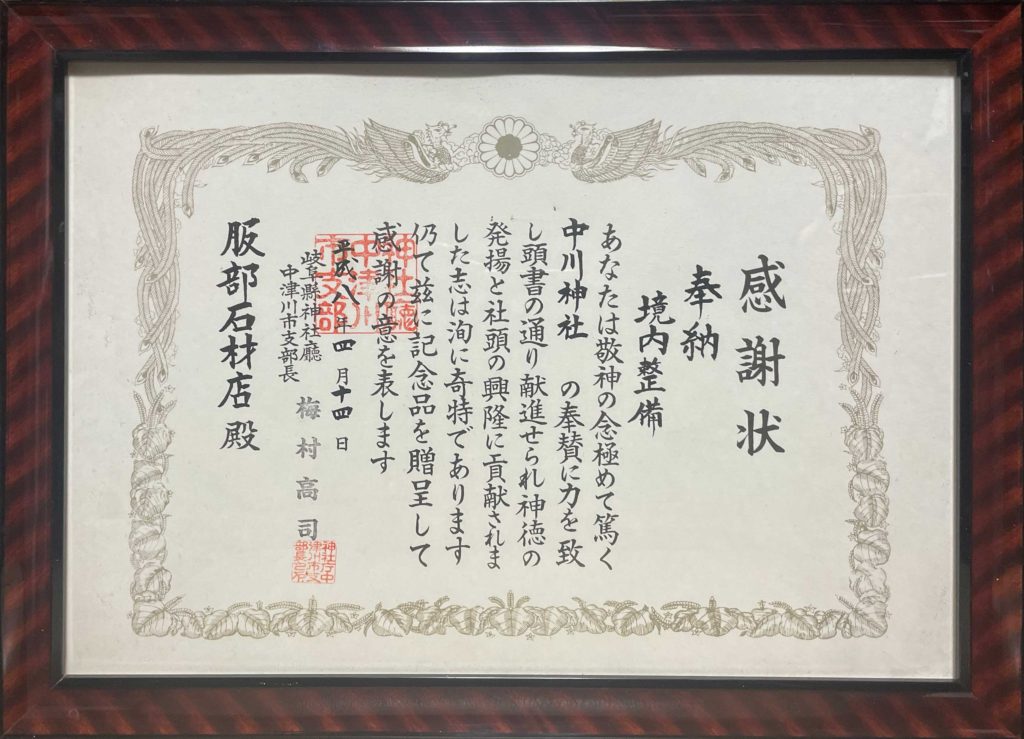 感謝状
奉納
境内整備
あなたは敬神の念極めて篤く
中川神社 の奉賛に力を致
し頭書の通り献進せられ神徳の
発揚と社頭の興隆に貢献されま
した志は洵に奇特であります
仍て茲に記念品を贈呈して
感謝の意を表します
平成八年四月十四日
岐阜縣神社廳
中津川市支部長
梅村高司
服部石材店殿
神社廳
中津川
市支部